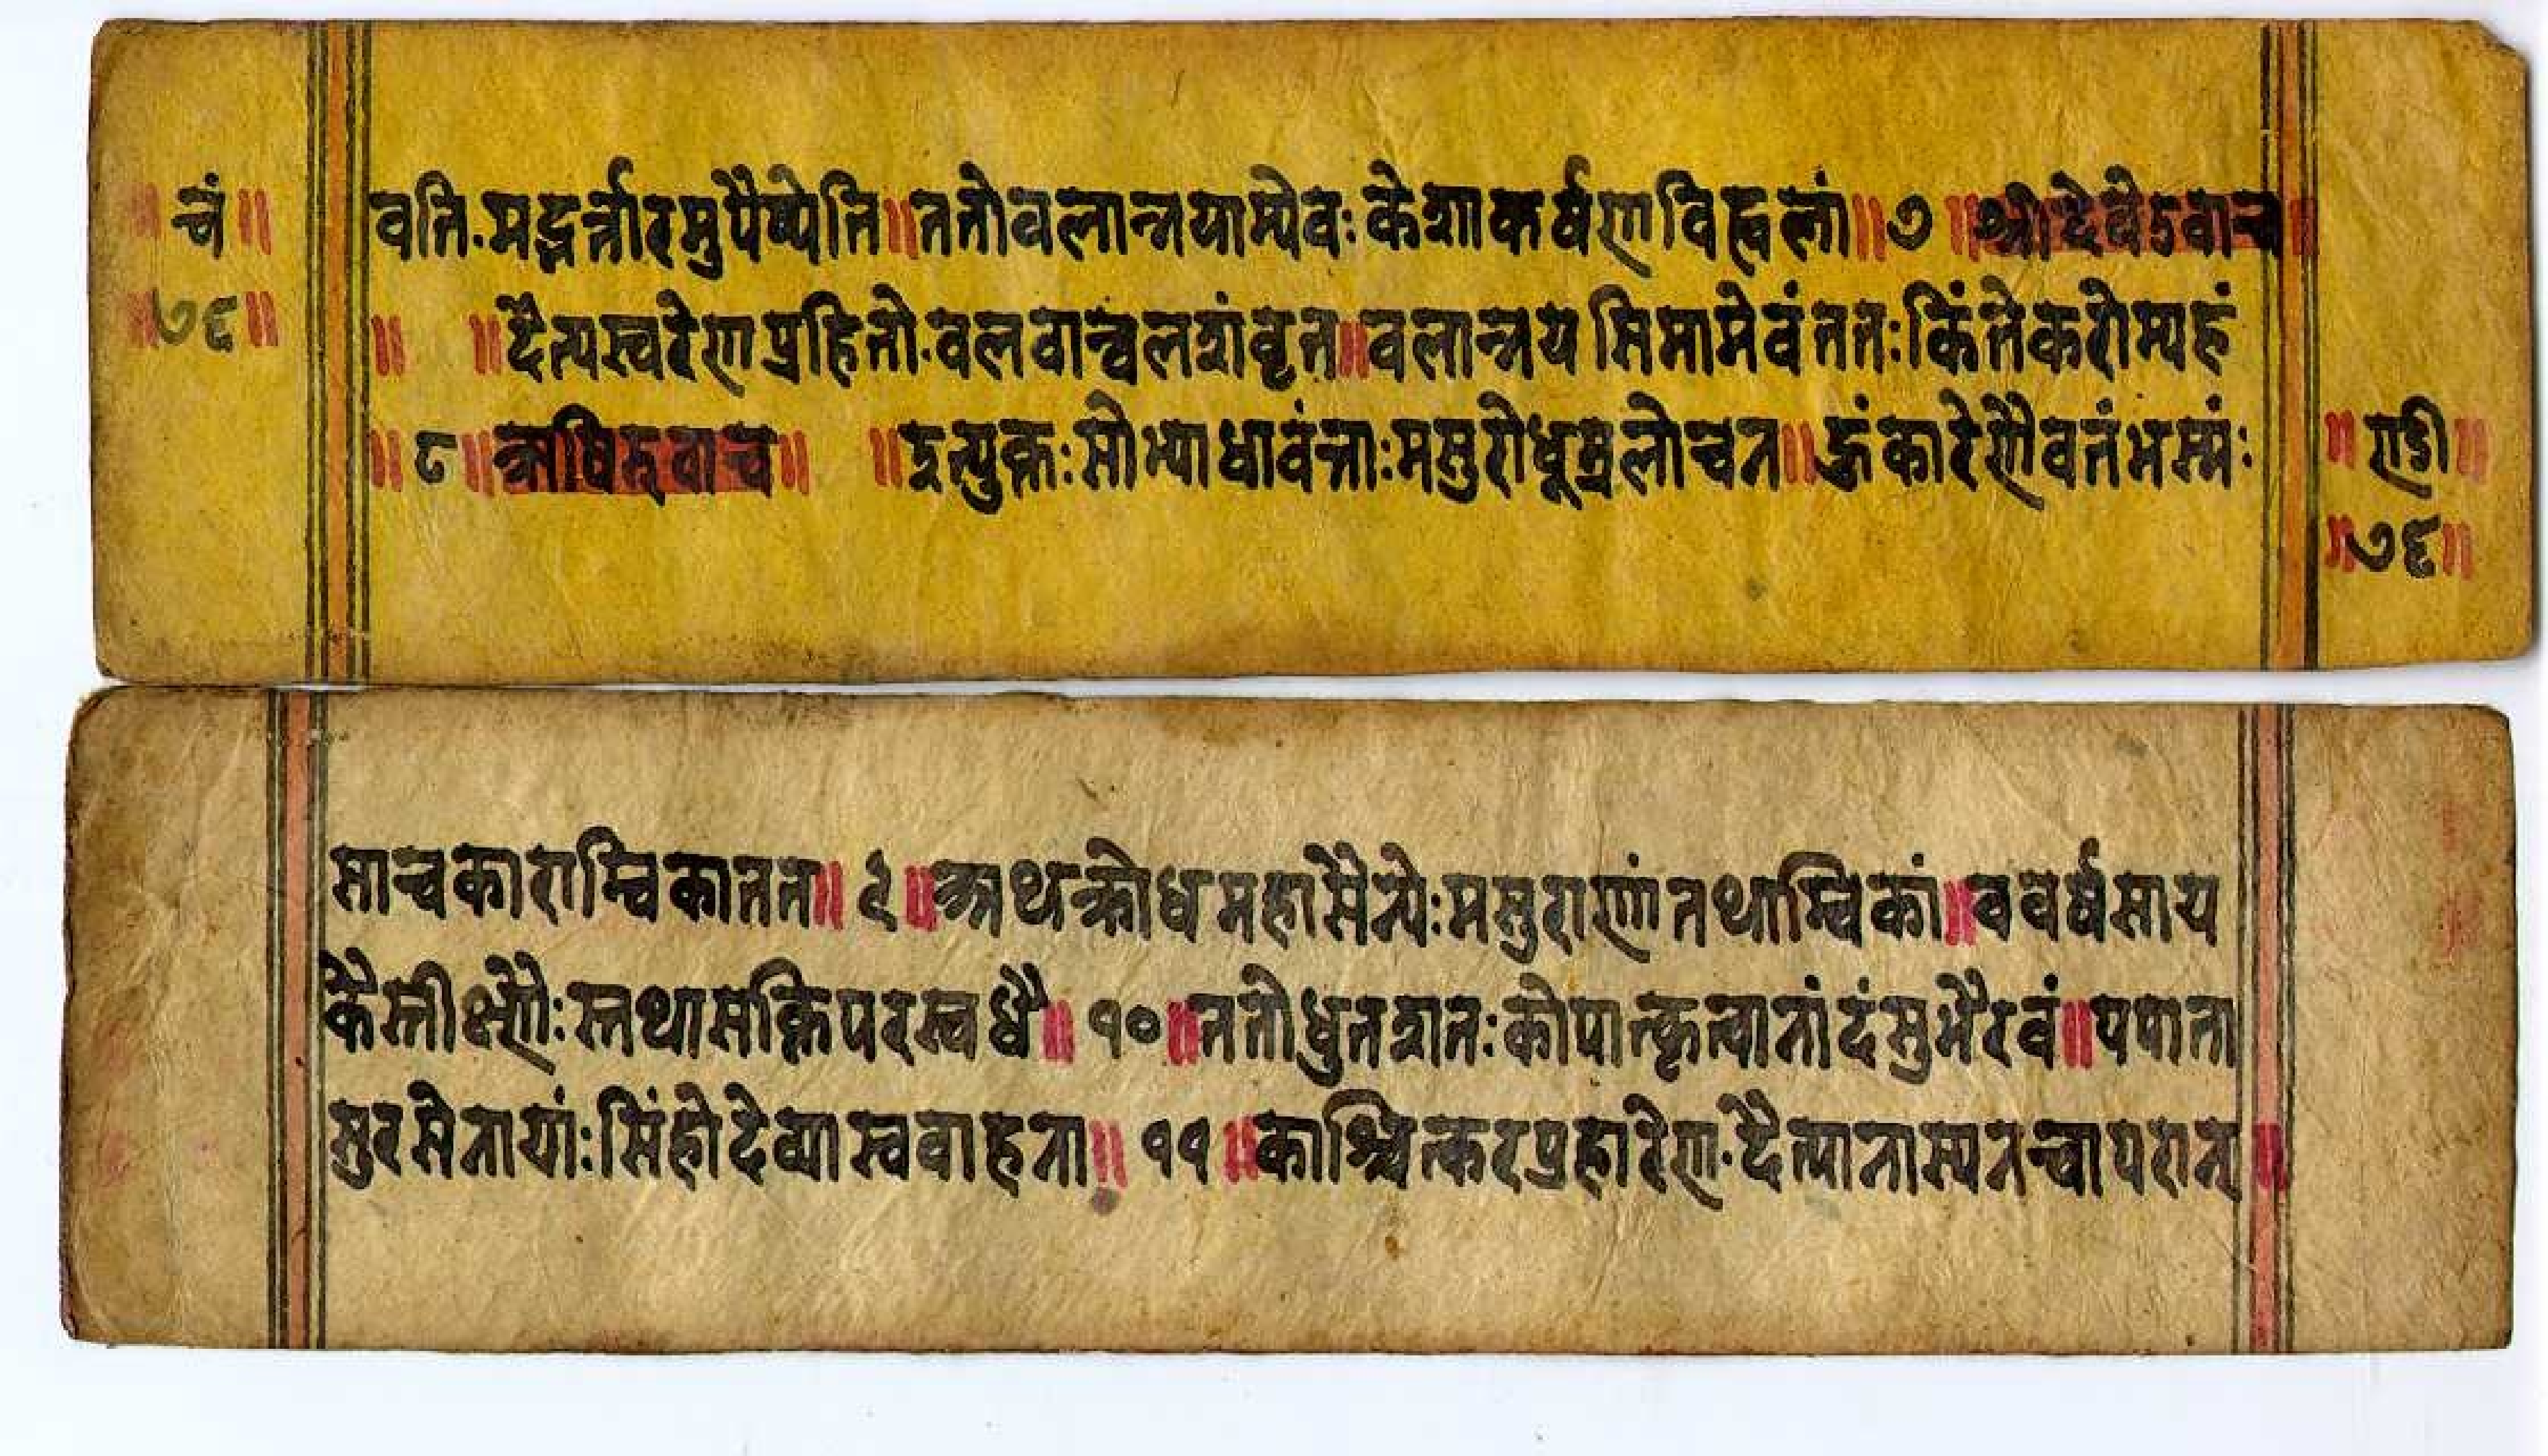 ॥ चं ॥
॥ ७६ ॥
वति·मद्भर्त्तारमुपैष्येति॥ततोवलान्नयाम्येवः केशाकर्षणविह्वलां॥७॥श्रीदेवेउवाच॥
॥ ॥दैत्यस्वरेणप्रहितो·वलवान्वलशंवृत॥वलान्नयसिमामेवंततःकिंतेकरोम्यहं
॥८॥ऋषिरुवाच॥ ॥इत्युक्तःसोभ्याधावंत्ताःमसुरोधूम्रलोचन॥हुंकारेणैवतंभस्मंः
॥ ण्डी ॥
॥ ७६ ॥
साचकाराम्विकातत॥ ९॥अथक्रोधमहासैन्येःमसुराणांतथाम्विकां॥ववर्षसाय
कैस्तीक्ष्णैःस्तथासक्तिपरस्वधै॥ १०॥ततोधुतशतःकोपात्कृत्वानांदंसुभैरवं॥पपाता
सुरसेनायांःसिंहोदेव्यास्ववाहना॥ ११॥काश्चित्करप्रहारेण·दैत्यानास्यनन्चापरान्॥